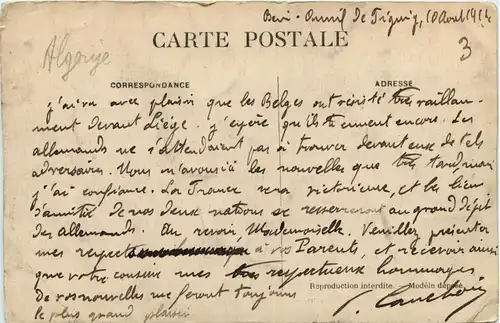 Beni-Ounif de Figuig, 10 Août 1914
Algerije
3
CARTE POSTALE
CORRESPONDANCE
ADRESSE
j'ai vu avec plaisir que les Belges ont résisté très vaillam-
ment devant Liége. j'espère qu'ils tiennent encore. Les
allemands ne s'attendaient pas à trouver devant eux de tels
adversaires. Nous n'avons ici les nouvelles que très tard, mais
j'ai confiance. La France sera victorieuse, et les liens
d'amitié de nos deux nations se resserreront au grand dépit
des allemands. Au revoir Mademoiselle. Veuillez présenter
mes respects à vos Parents, et recevoir ainsi
que votre mes très respectueux hommages
De vos nouvelles me feront toujours
le plus grand plaisir
Reproduction interdite. Modèle déposé